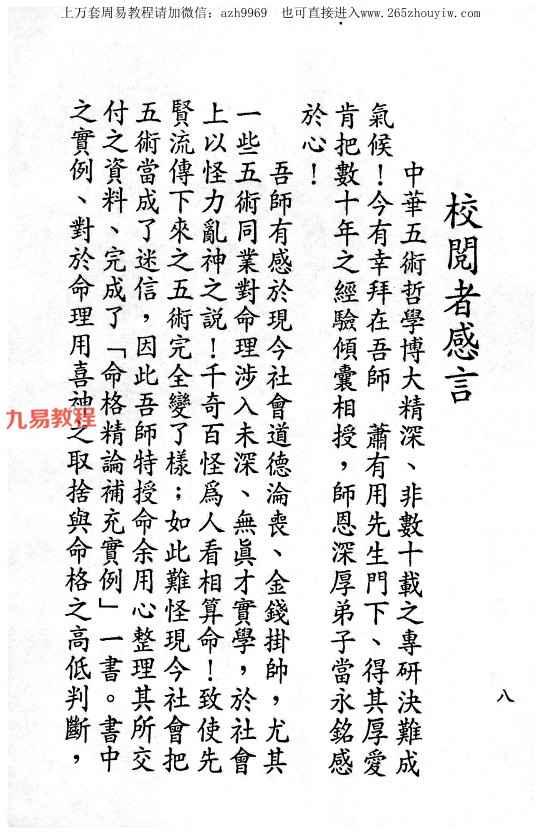 上万套周易教程请加微信：azh9969 也可直接进入www.265zhouyiw.com
校閱者感言
中華五術哲學博大精深、非數十載之專研決難成
氣候！今有幸拜在吾師 蕭有用先生門下、得其厚愛
肯把數十年之經驗傾囊相授，師恩深厚弟子當永銘感
於心！
吾師有感於現今社會道德淪喪、金錢掛帥，尤其
一些五術同業對命理涉入未深、無眞才實學，於社會
上以怪力亂神之説！千奇百怪爲人看相算命！致使先
賢流傳下來之五術完全變了樣；如此難怪現今社會把
五術當成了迷信，因此吾師特授命余用心整理其所交
付之資料、完成了「命格精論補充實例」一書。書中
之實例、對於命理用喜神之取捨與命格之高低判斷，
八
九易教程